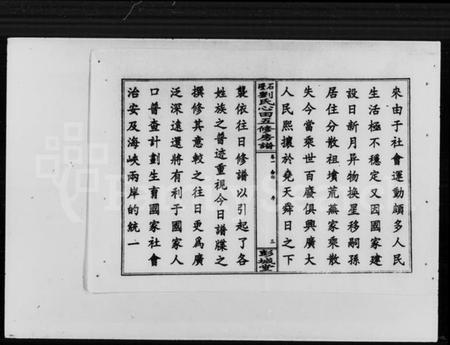 來由于社會運動頻多人民
生活極不穩定又因國家建
設日新月异物換星移嗣孫
居住分散祖墳荒蕪家乘散
失今當乘世百廢俱興廣大
人民熙攘於堯天舜日之下
石隆劉氏心田五修房譜
卷一
序
三
彭城堂
襲依往日修譜以引起了各
姓族之普遍重視今日譜牒之
撰修其意較之往日更爲廣
泛深遠還將有利于國家人
口普查計劃生育國家社會
治安及海峽兩岸的統一